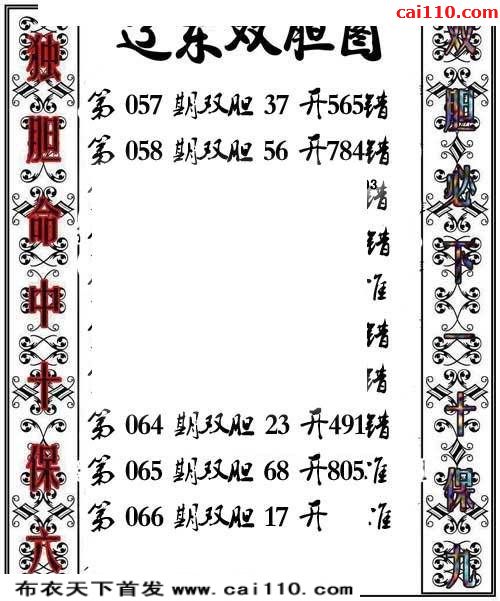 cai110.com
辽东双胆图
独胆命中十保六
第 057 期双胆 37 开565错
第 058 期双胆 56 开784错
错
错
准
错
错
第 064 期双胆 23 开491错
第 065 期双胆 68 开805准
第 066 期双胆 17 开 准
双胆必下一十保九
布衣天下首发 www.cai110.com